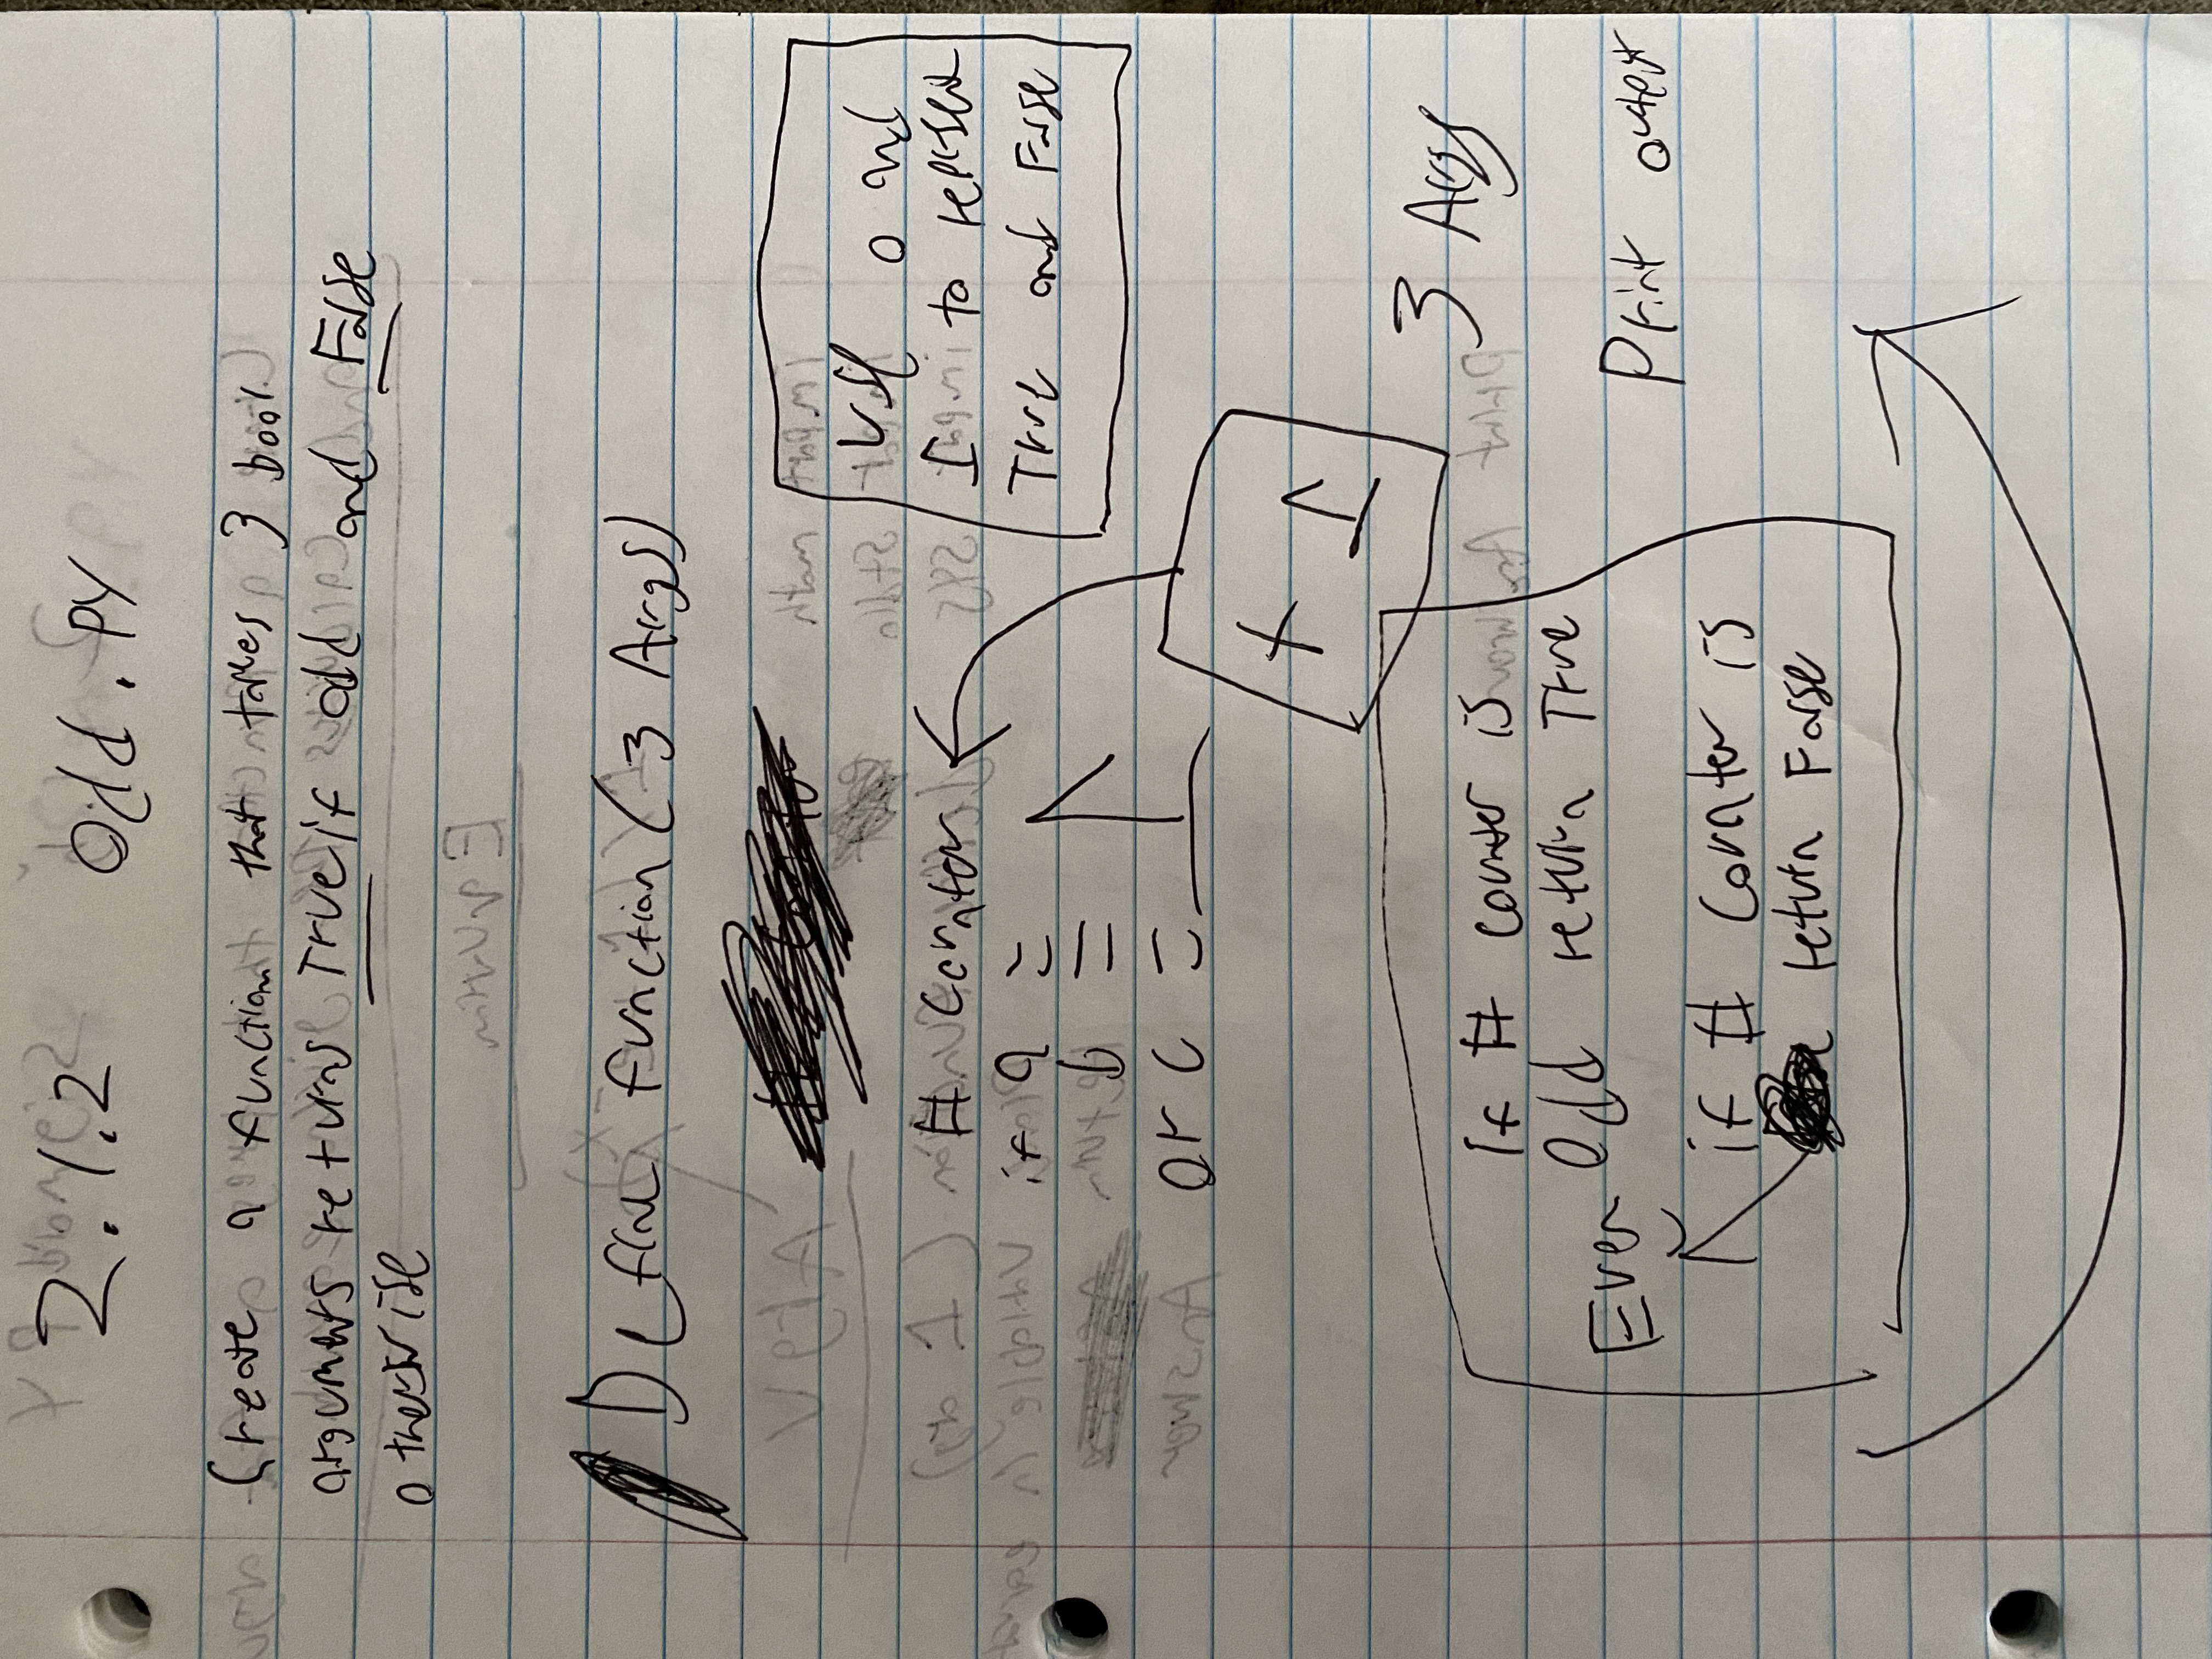 2.1.2 Odd.PY
Create a function that takes 3 bool
arguments returns True if odd and False
otherwise
Define function (3 Args)
# Counter
if a =
b = 1
or c =
Use 0 and
1 to represent
True and False
+ 1
3 Args
If # counter is
Odd return True
Even
if # Counter is
return False
Print output